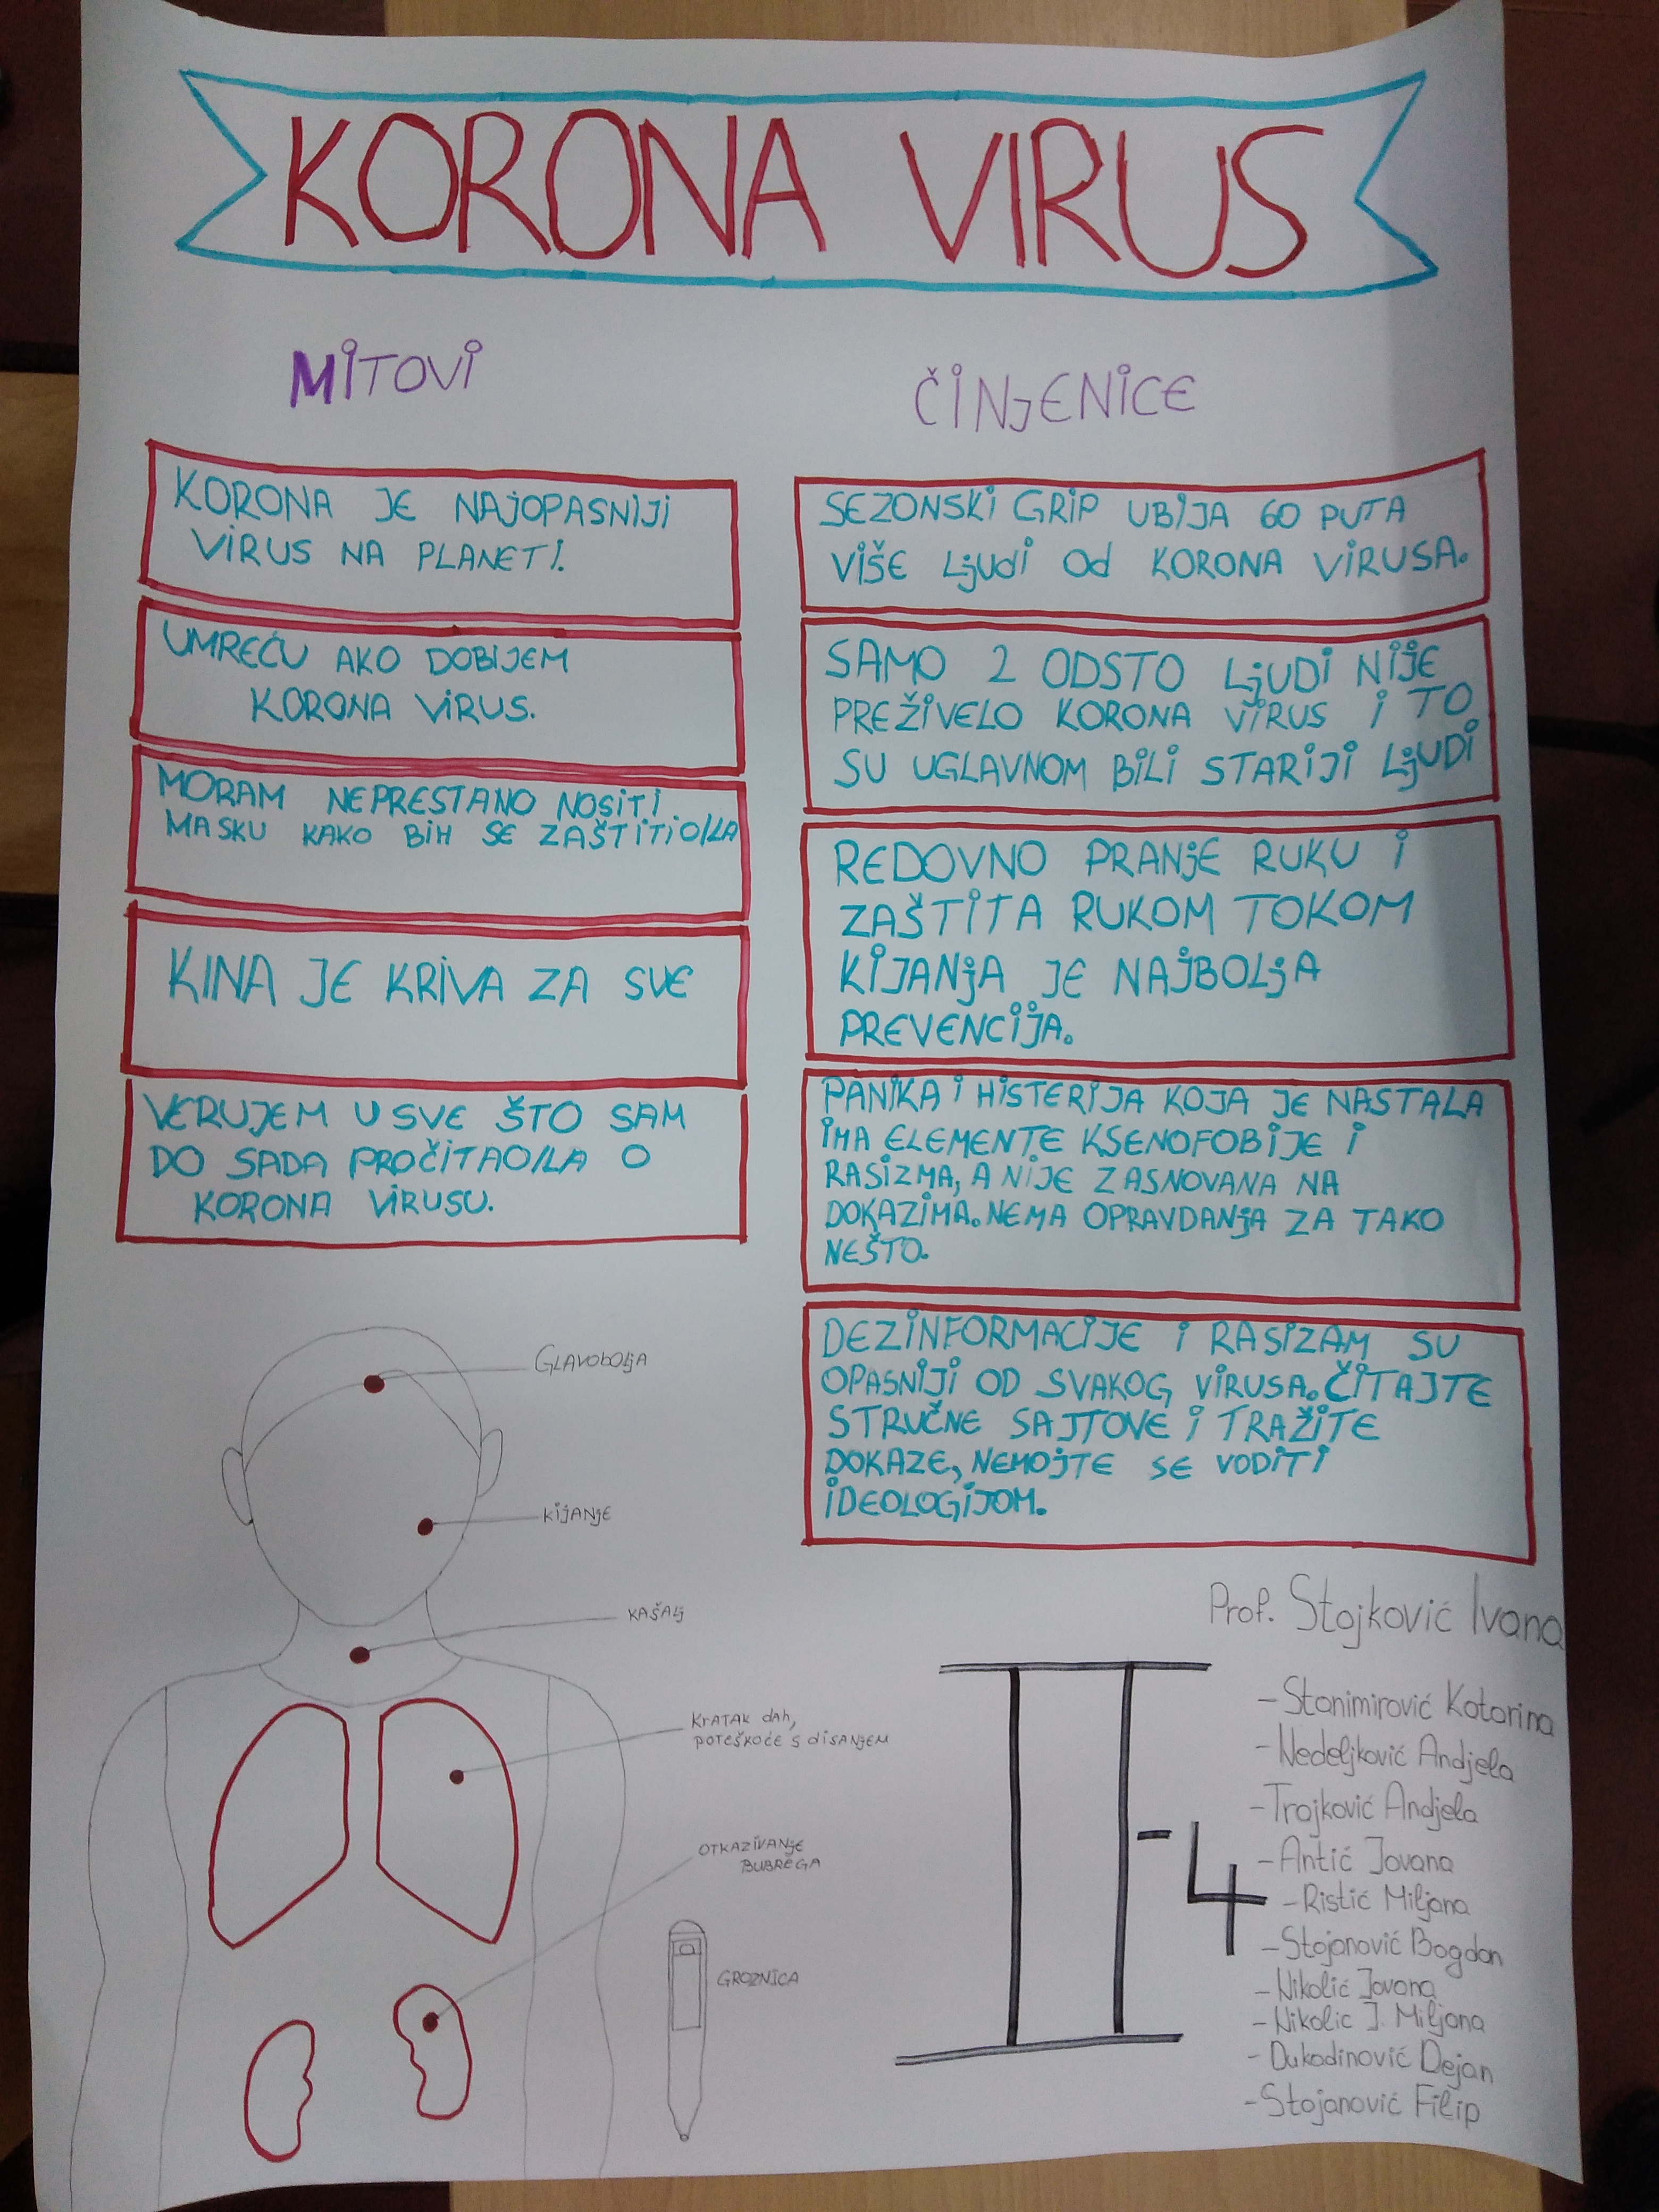 KORONA VIRUS
MITOVI
KORONA JE NAJOPASNIJI
VIRUS NA PLANETI.
UMREĆU AKO DOBIJEM
KORONA VIRUS.
MORAM NEPRESTANO NOSITI
MASKU KAKO BIH SE ZAŠTITIO/LA
KINA JE KRIVA ZA SVE
VERUJEM U SVE ŠTO SAM
DO SADA PROČITAO/LA O
KORONA VIRUSU.
ČINJENICE
SEZONSKI GRIP UBIJA 60 PUTA
VIŠE LJUDI OD KORONA VIRUSA.
SAMO 2 ODSTO LJUDI NIJE
PREŽIVELO KORONA VIRUS I TO
SU UGLAVNOM BILI STARIJI LJUDI
REDOVNO PRANJE RUKU I
ZAŠTITA RUKOM TOKOM
KIJANJA JE NAJBOLJA
PREVENCIJA.
PANIKA I HISTERIJA KOJA JE NASTALA
IMA ELEMENTE KSENOFOBIJE I
RASIZMA, A NIJE ZASNOVANA NA
DOKAZIMA. NEMA OPRAVDANJA ZA TAKO
NEŠTO.
DEZINFORMACIJE I RASIZAM SU
OPASNIJI OD SVAKOG VIRUSA. ČITAJTE
STRUČNE SAJTOVE I TRAŽITE
DOKAZE, NEMOJTE SE VODITI
IDEOLOGIJOM.
GLAVOBOLJA
KIJANJE
KAŠALJ
KRATAK DAH,
POTEŠKOĆE S DISANJEM
OTKAZIVANJE
BUBREGA
GROZNICA
II-4
Prof. Stojković Ivana
-Stanimirović Katarina
-Nedeljković Andjela
-Trajković Andjela
-Antić Jovana
-Ristić Miljana
-Stojanović Bogdan
-Nikolić Jovana
-Nikolic J. Miljana
-Dukadinović Dejan
-Stojanović Filip